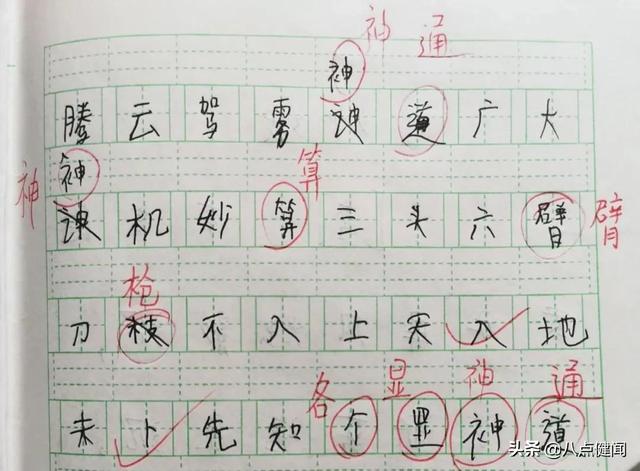 神 通
神
腾 云 驾 雾 道 广 大
神 神 算
机 妙 算 三 头 六 臂 臂
枪
刀 枝 不 入 上 天 入 地
各 显 神 通
未 卜 先 知 个 显 神 道
头条 @八点健闻